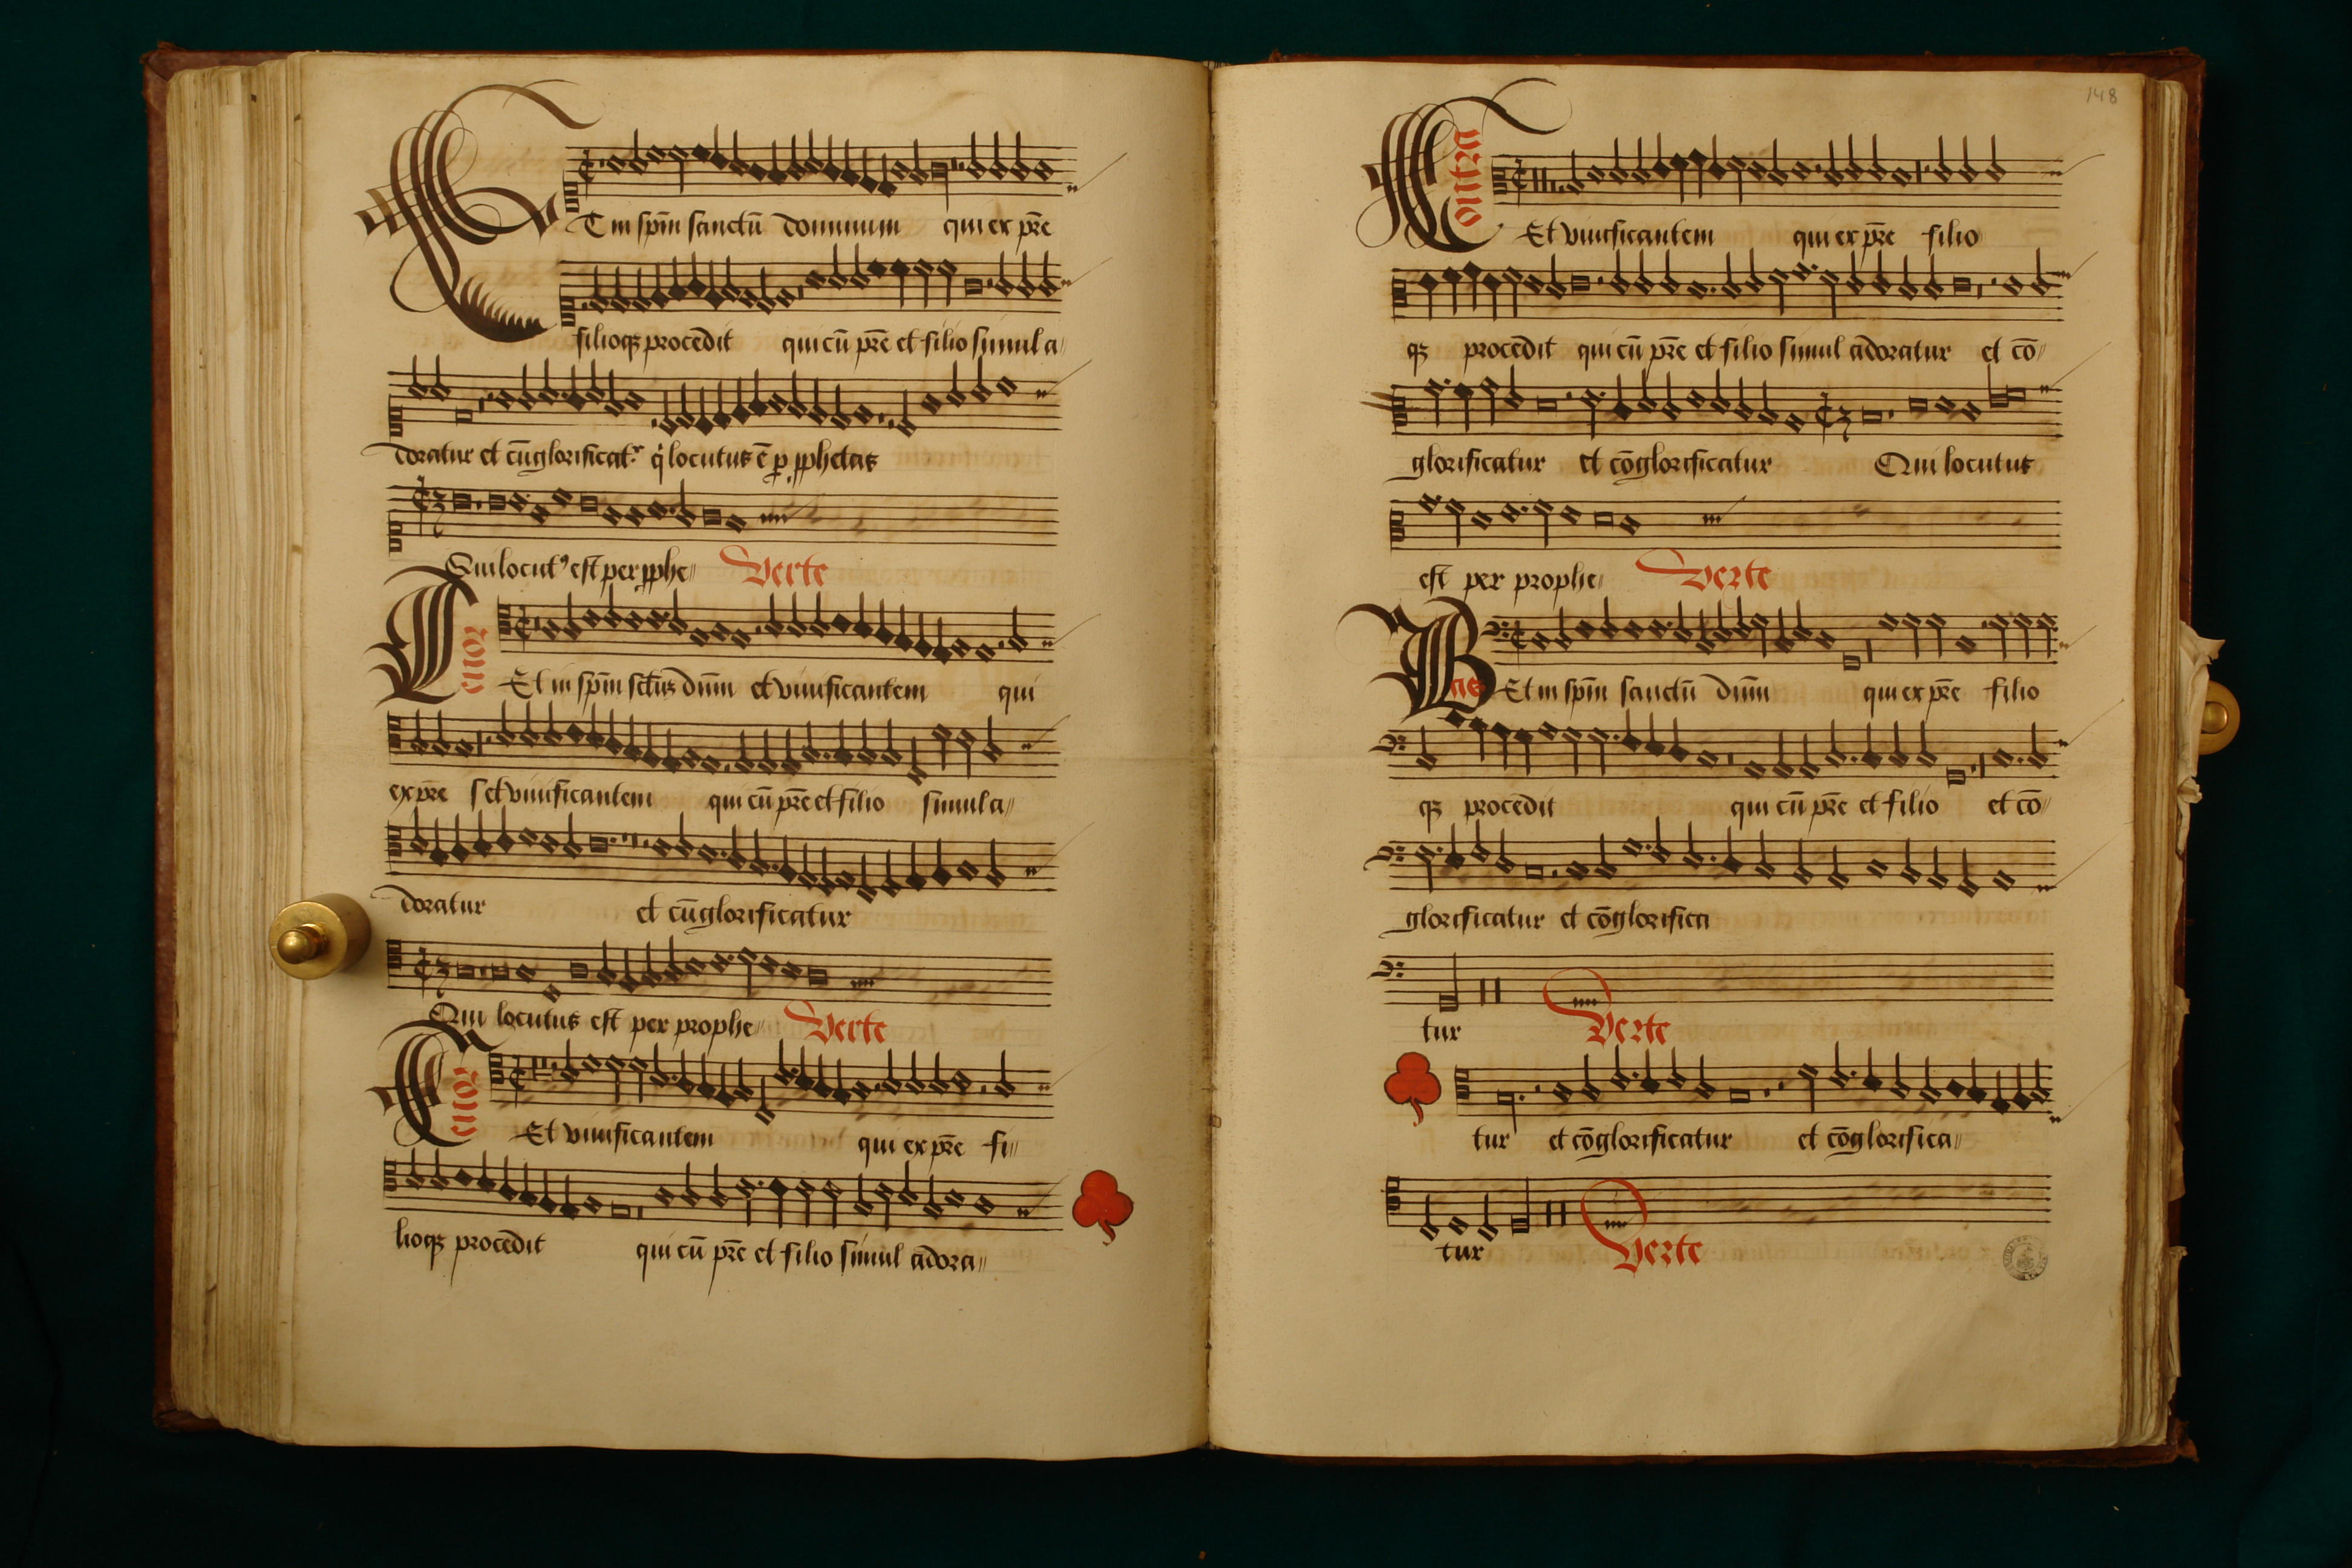 Et in spm̄ sanctū dominum qui ex pr̄e
filioqꝫ procedit qui cū pr̄e et filio simul a
doratur et cūglorificat᷑ q̇ locutus ē ꝑ ꝓphetas
Qui locutꝰ est per ꝓphe Verte
Tenor
Et in spm̄ dūm et vivificantem qui
ex pr̄e et vivificantem qui cū pr̄e et filio simul a
doratur et cūglorificatur
Qui locutus est per prophe Verte
Tenor
Et vivificantem qui ex pr̄e fi
lioqꝫ procedit qui cū pr̄e et filio simul adora
148
Contra
Et vivificantem qui ex pr̄e filio
qꝫ procedit qui cū pr̄e et filio simul adoratur et cō
glorificatur et cōglorificatur Qui locutus
est per prophe Verte
Bas
Et in spm̄ sanctū dūm qui ex pr̄e filio
qꝫ procedit qui cū pr̄e et filio et cō
glorificatur et cōglorifica
tur Verte
tur et cōglorificatur et cōglorifica
tur Verte